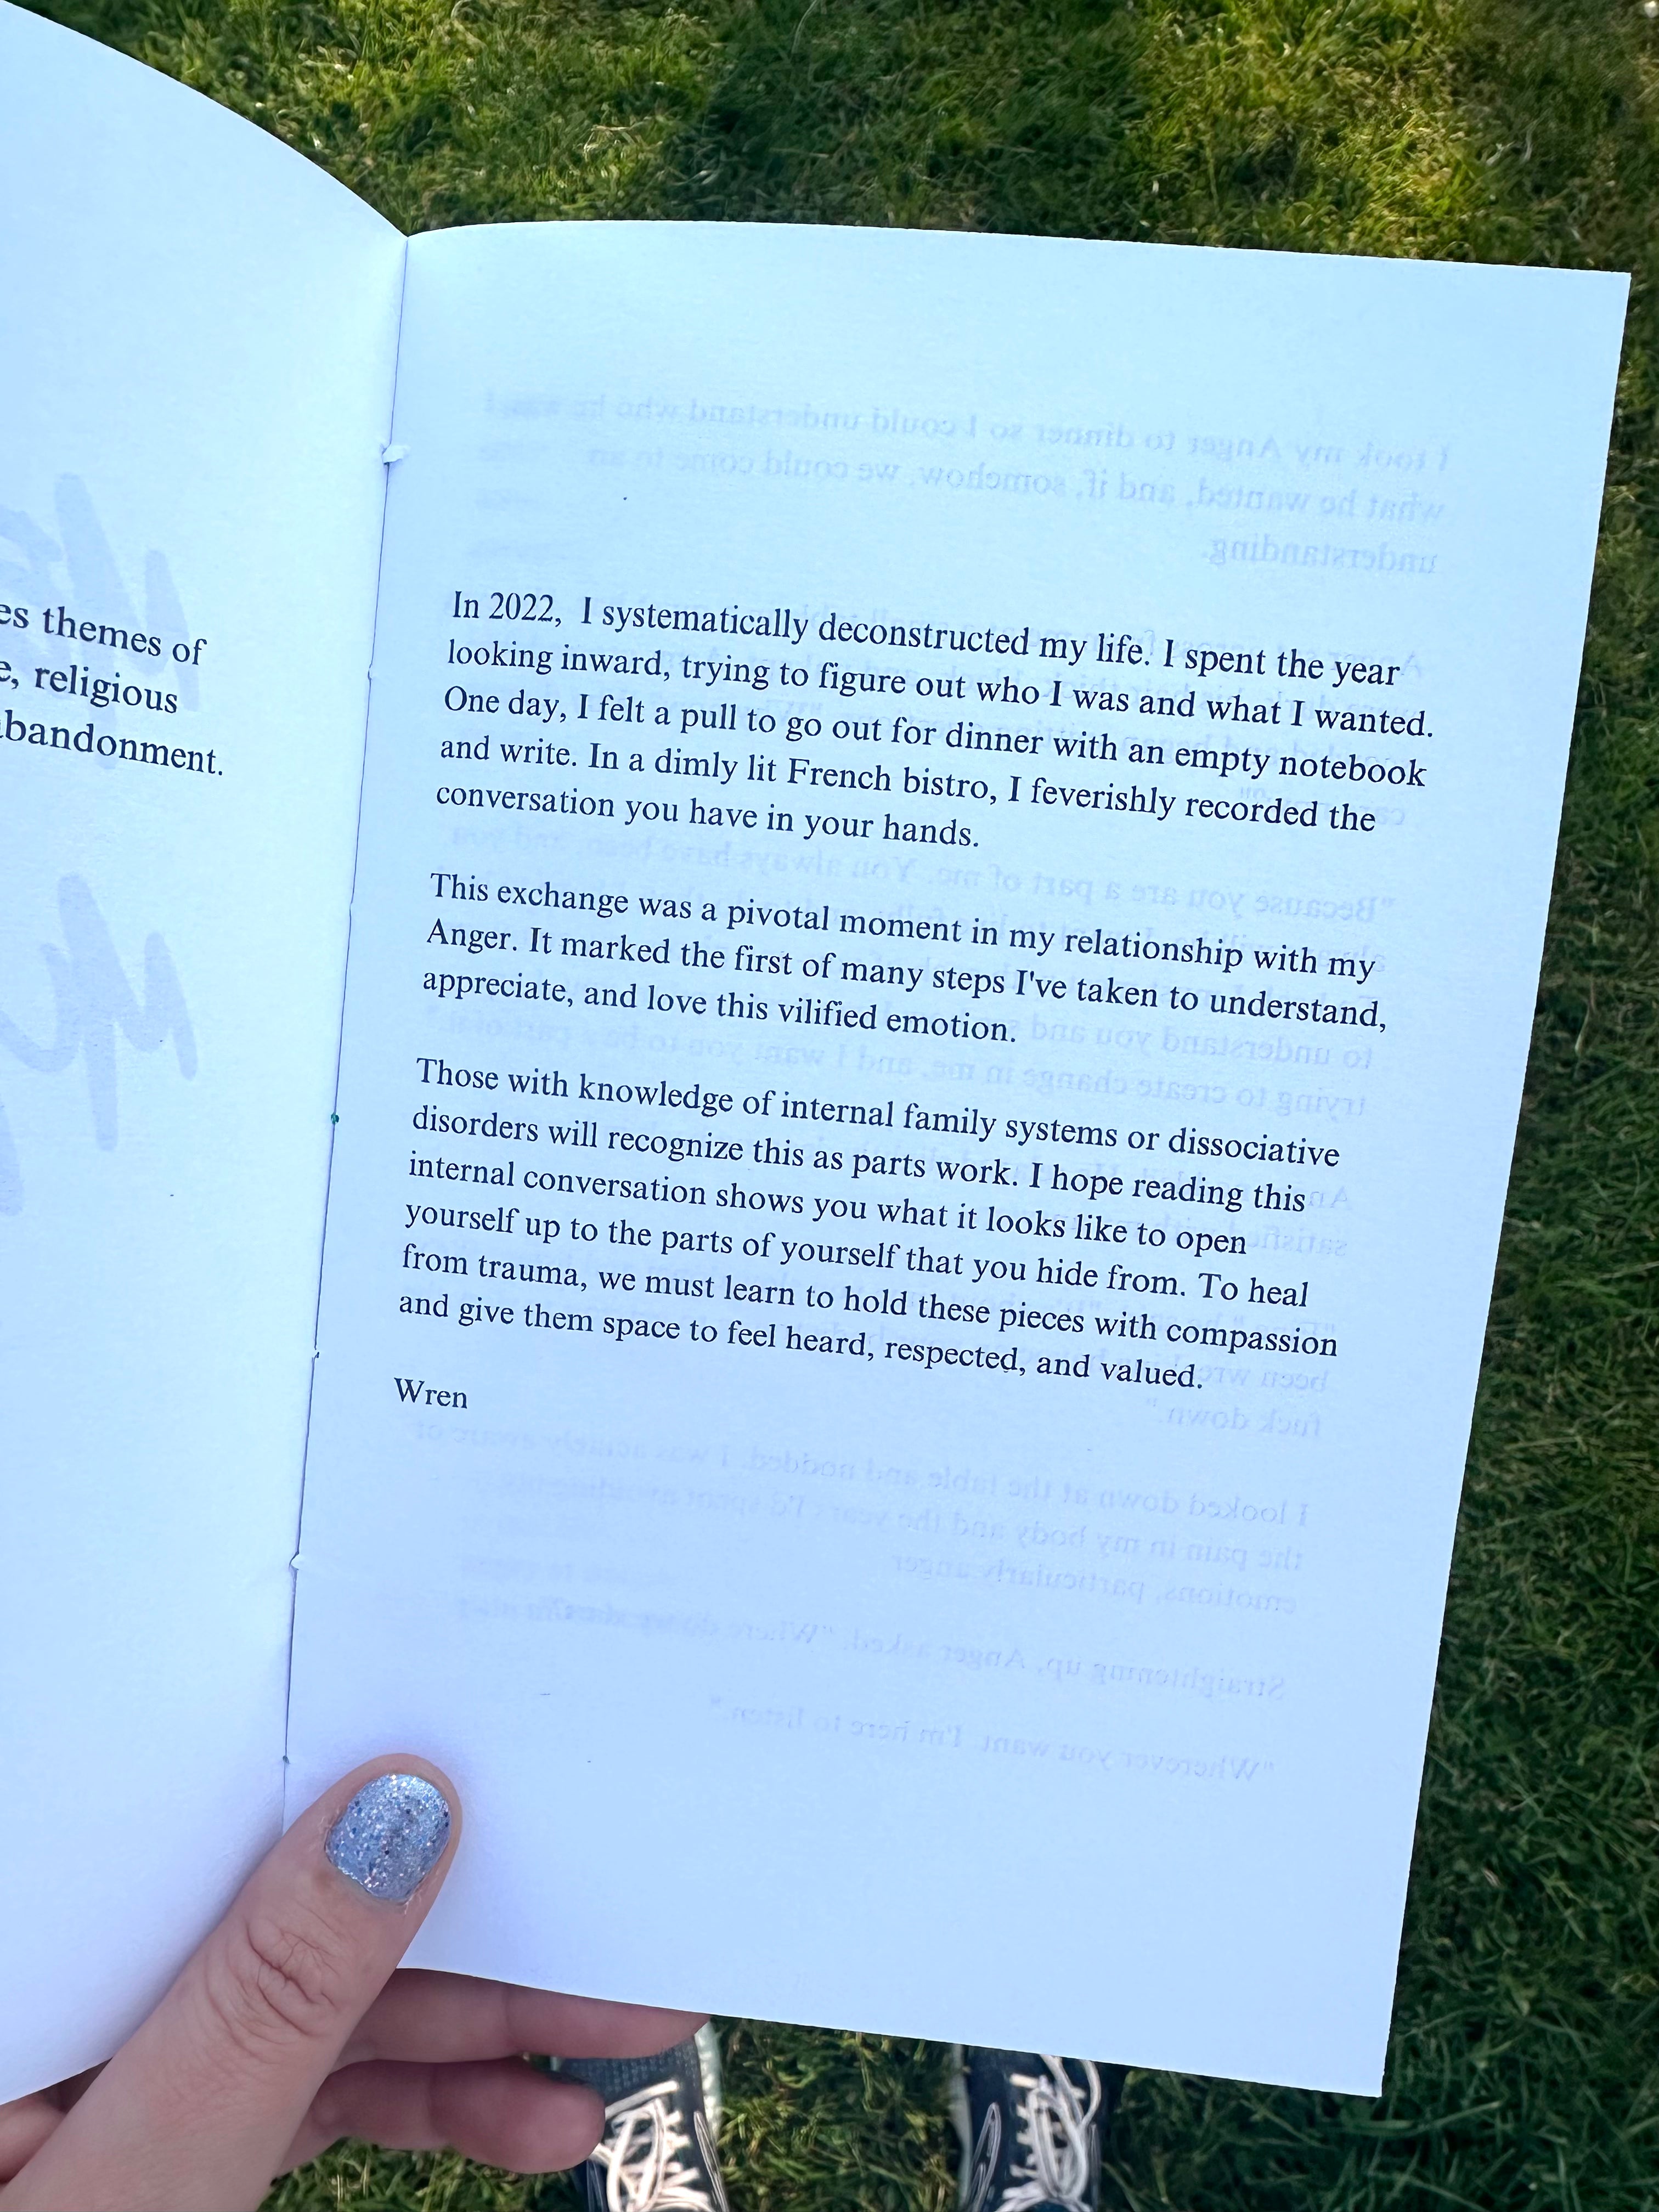 es themes of
e, religious
abandonment.
In 2022, I systematically deconstructed my life. I spent the year
looking inward, trying to figure out who I was and what I wanted.
One day, I felt a pull to go out for dinner with an empty notebook
and write. In a dimly lit French bistro, I feverishly recorded the
conversation you have in your hands.
This exchange was a pivotal moment in my relationship with my
Anger. It marked the first of many steps I've taken to understand,
appreciate, and love this vilified emotion.
Those with knowledge of internal family systems or dissociative
disorders will recognize this as parts work. I hope reading this
internal conversation shows you what it looks like to open
yourself up to the parts of yourself that you hide from. To heal
from trauma, we must learn to hold these pieces with compassion
and give them space to feel heard, respected, and valued.
Wren